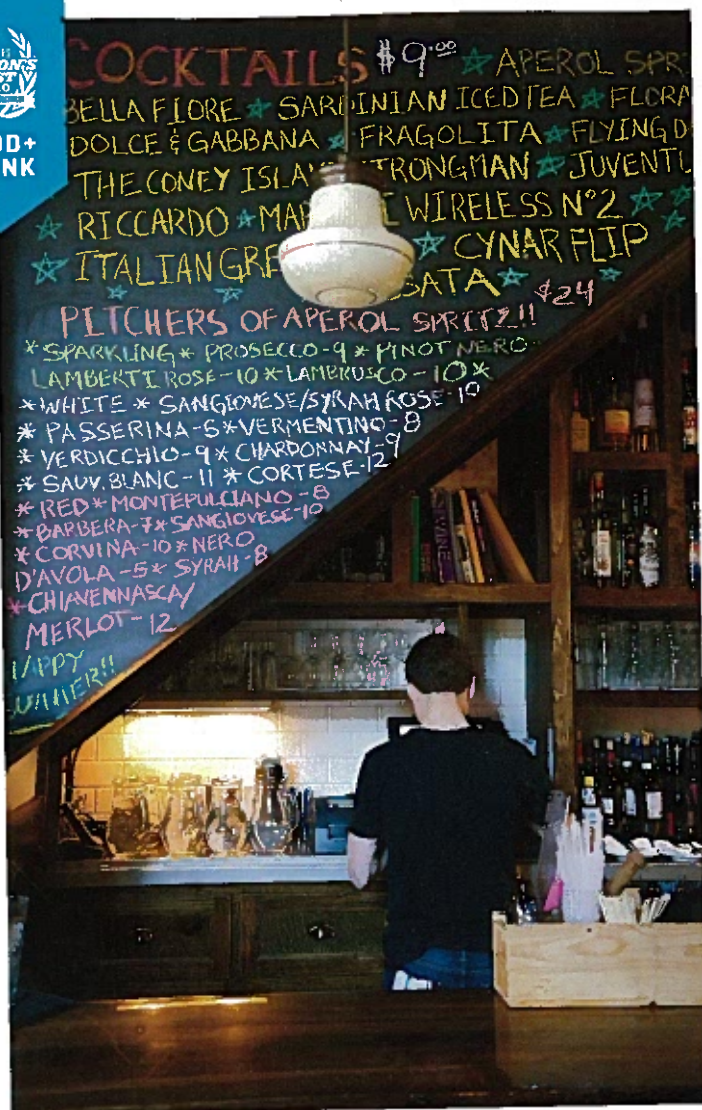 COCKTAILS $9.00 ☆ APEROL SPR
BELLA FIORE ☆ SARDINIAN ICED TEA ☆ FLORA
DOLCE & GABBANA ☆ FRAGOLITA ☆ FLYING D
THE CONEY ISLA STRONGMAN ☆ JUVENTU
☆ RICCARDO ☆ MAR WIRELESS Nº2 ☆
☆ ITALIAN GRE ☆ CYNAR FLIP
SATA ☆
PITCHERS OF APEROL SPRITZ!! $24
* SPARKLING * PROSECCO-9 * PINOT NERO
LAMBERTI ROSE-10 * LAMBRUSCO-10 *
* WHITE * SANGIOVESE/SYRAH ROSE-10
* PASSERINA-6 * VERMENTINO-8
* VERDICCHIO-9 * CHARDONNAY-9
* SAUV. BLANC-11 * CORTESE-12
* RED * MONTEPULCIANO-8
* BARBERA-7 * SANGIOVESE-10
* CORVINA-10 * NERO
D'AVOLA-5 * SYRAH-8
* CHIAVENNASCA/
MERLOT-12
HAPPY
SUMMER!!
OD+
NK
WINE